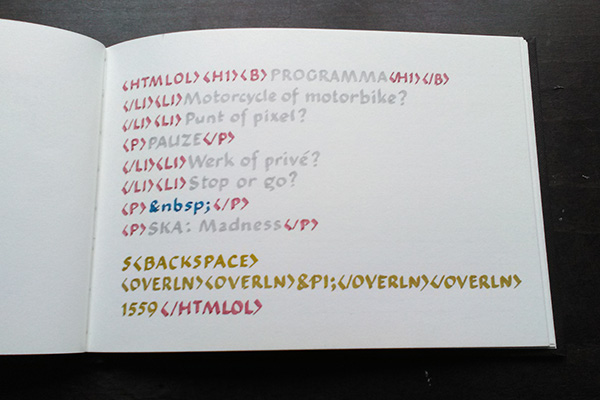 <HTMLOL><H1><B>PROGRAMMA</H1></B>
</LI><LI>Motorcycle of motorbike?
</LI><LI>Punt of pixel?
<P>PAUZE</P>
</LI><LI>Werk of privé?
</LI><LI>Stop or go?
<P>&nbsp;</P>
<P>SKA: Madness</P>
S<BACKSPACE>
<OVERLN><OVERLN>&PI;</OVERLN></OVERLN>
1559</HTMLOL>